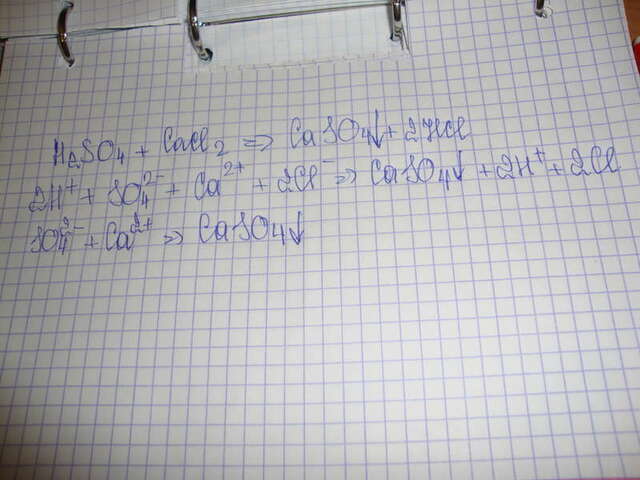 H₂SO₄ + CaCl₂ => CaSO₄↓ + 2HCl
2H⁺ + SO₄²⁻ + Ca²⁺ + 2Cl⁻ => CaSO₄↓ + 2H⁺ + 2Cl
SO₄²⁻ + Ca²⁺ => CaSO₄↓